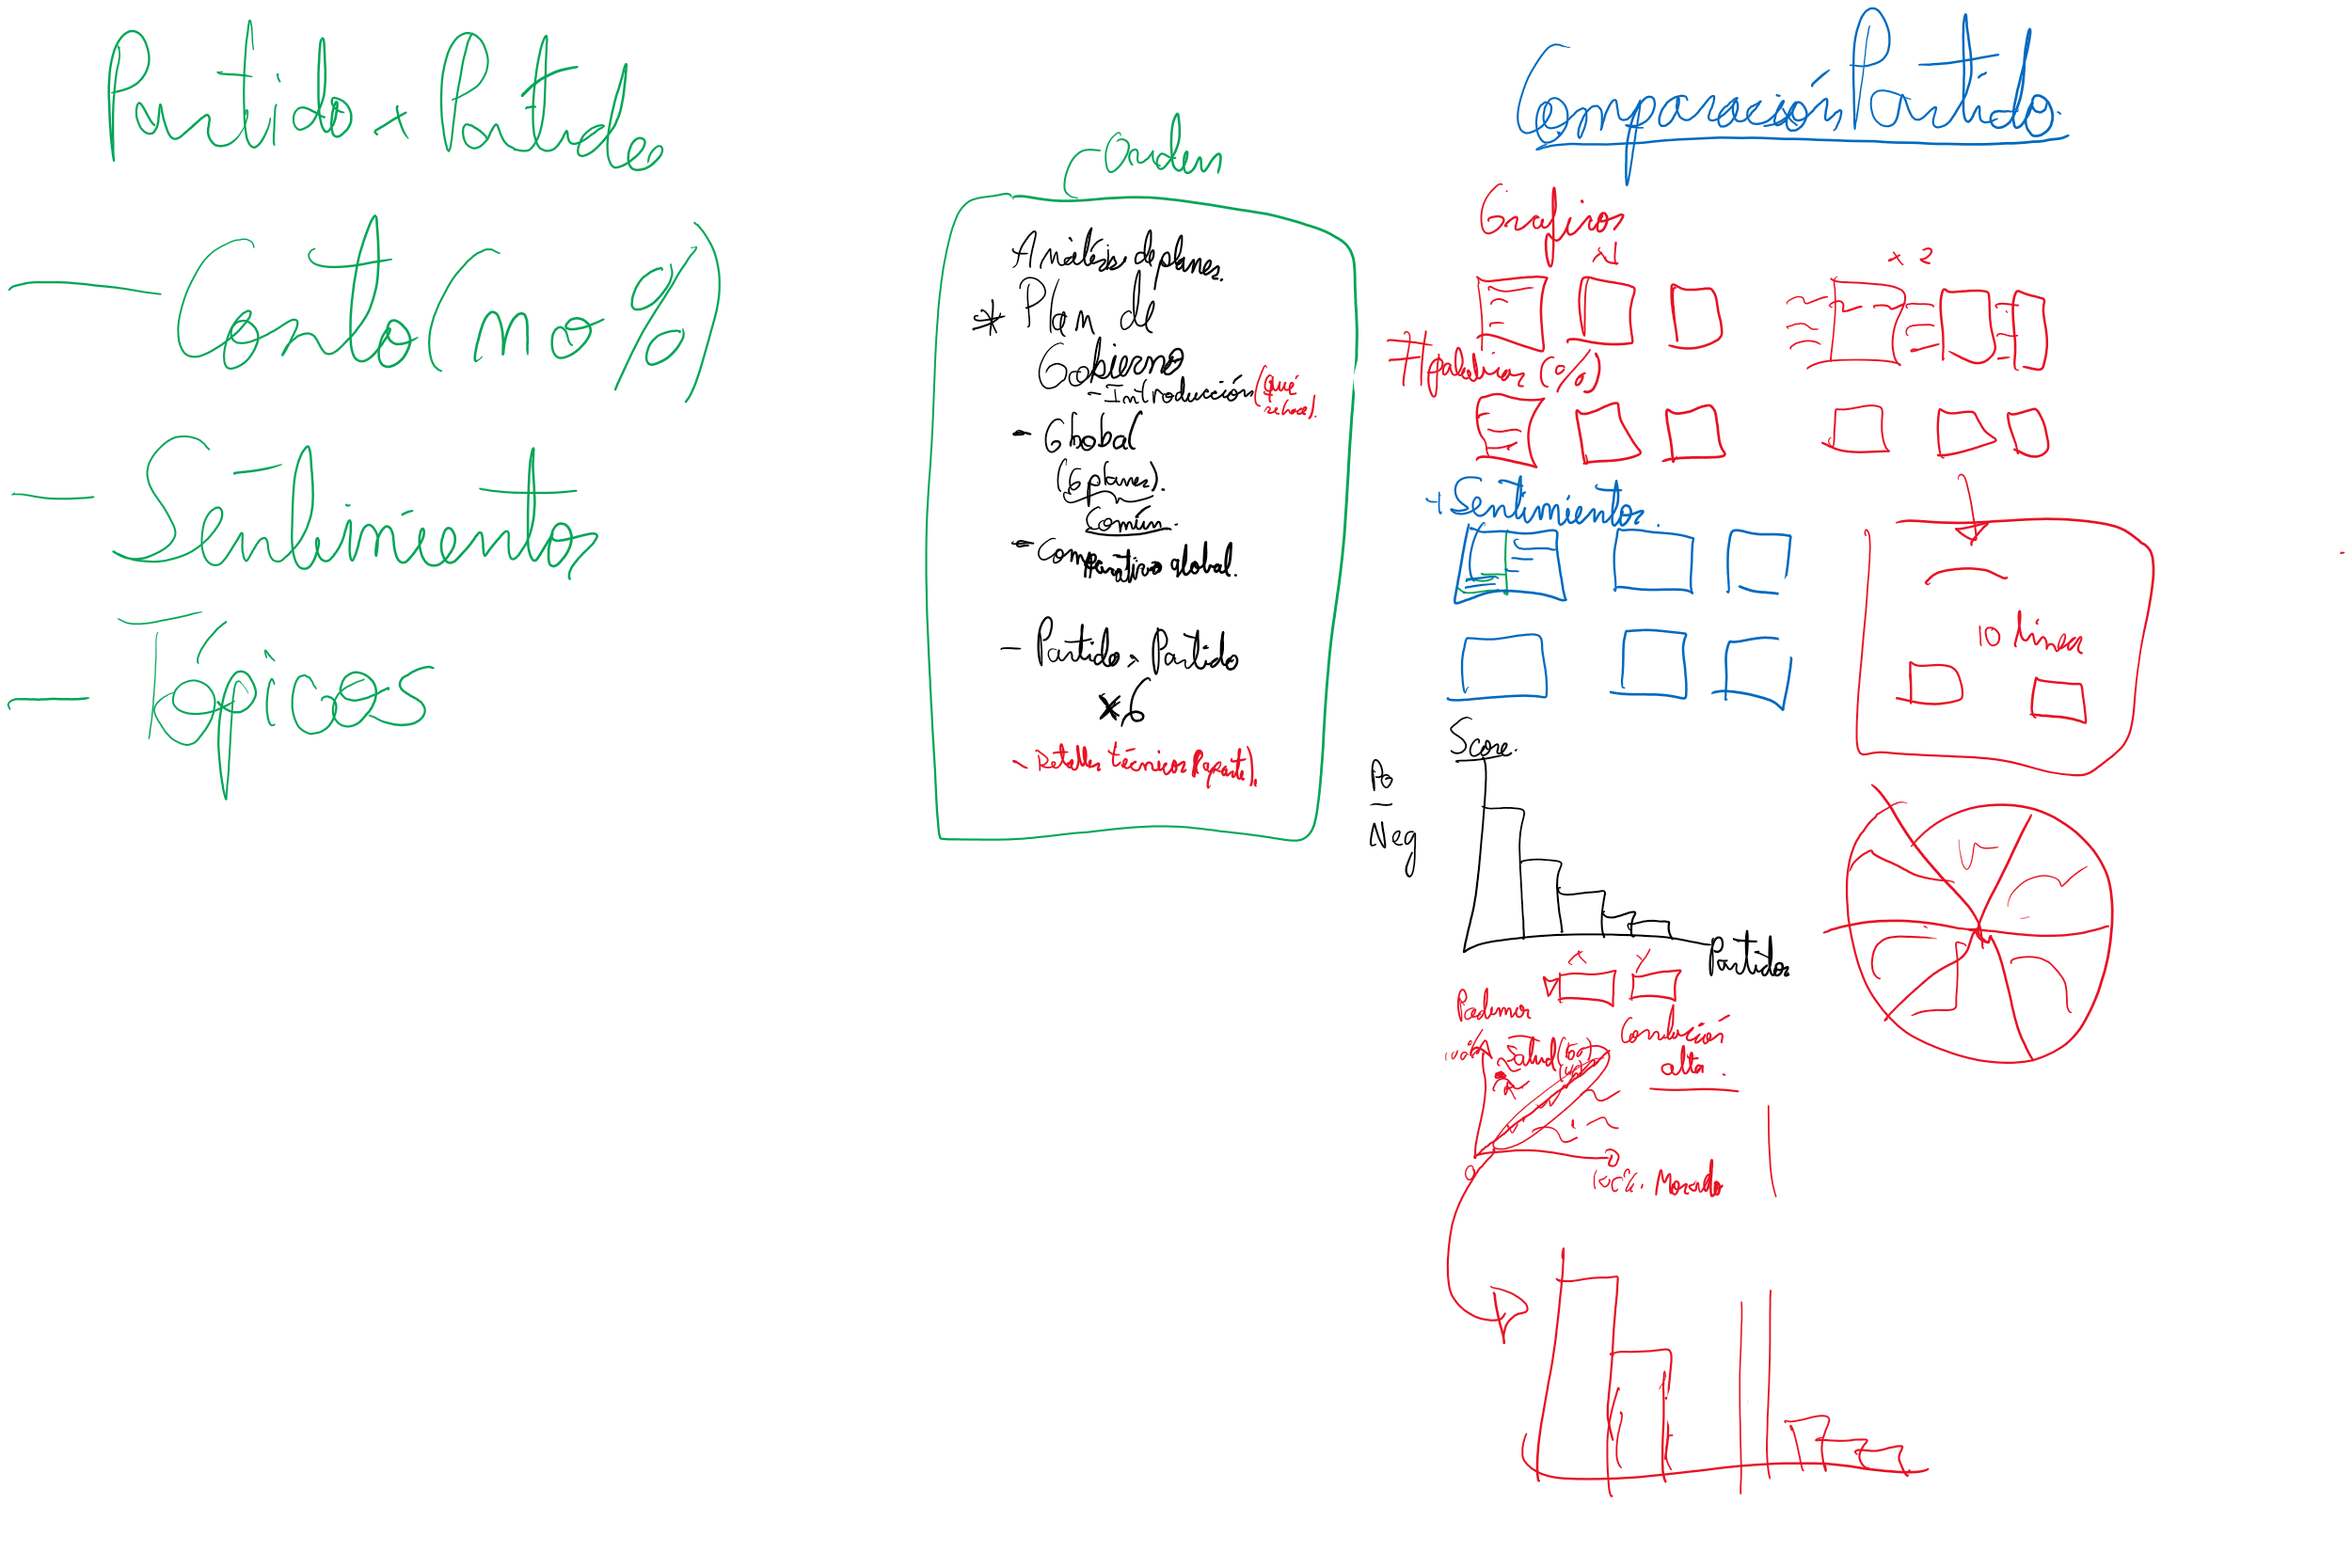 Partido x Partido
- Conto (no %)
- Sentimientos
- Tópicos
Orden
Análisis de planes.
* Plan de
Gobierno
- Introducción (qué
se hace).
- Global
(6 planes).
Común.
- Comparativo global.
- Partido x Partido
x 6
- Detalles técnicos (aparte).
Comparación Partido.
Graficos
x1
x 2
# palabras (%)
+ Sentimientos.
10 línea
Score.
Po
Neg
Partidos
x
y
Podemos
100%
Salud (50,
Correlación
alta.
0
100%. Morado